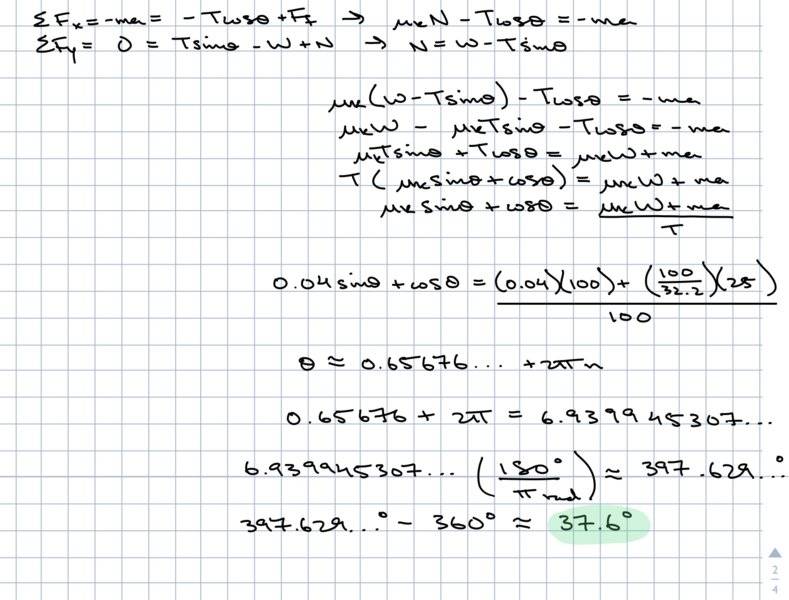 ΣFx = -ma = -Tcosθ + Ff → μkN - Tcosθ = -ma
ΣFy = 0 = Tsinθ - W + N → N = W - Tsinθ
μk(W - Tsinθ) - Tcosθ = -ma
μkW - μkTsinθ - Tcosθ = -ma
μkTsinθ + Tcosθ = μkW + ma
T(μksinθ + cosθ) = μkW + ma
μksinθ + cosθ = μkW + ma
T
0.04sinθ + cosθ = (0.04)(100) + (100/32.2)(25)
100
θ ≈ 0.65676... + 2πn
0.65676 + 2π = 6.939945307...
6.939945307... (180°/π rad) ≈ 397.629...°
397.629...° - 360° ≈ 37.6°
2
4